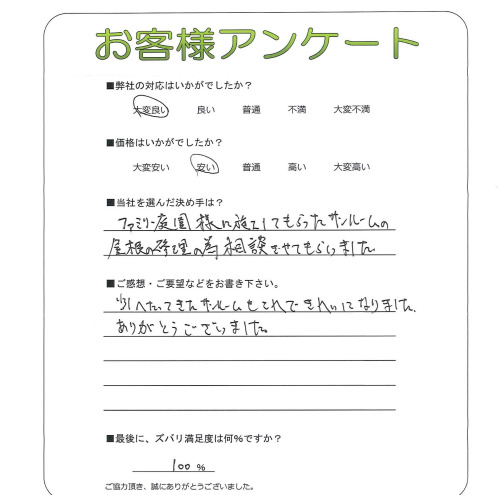 お客様アンケート
■弊社の対応はいかがでしたか？
大変良い 良い 普通 不満 大変不満
■価格はいかがでしたか？
大変安い 安い 普通 高い 大変高い
■当社を選んだ決め手は？
ファミリー庭園様に施工してもらったサンルームの
屋根の修理の為相談させてもらいました
■ご感想・ご要望などをお書き下さい。
へたってきたサンルームもこれできれいになりました。
ありがとうございました。
■最後に、ズバリ満足度は何％ですか？
100 %
ご協力頂き、誠にありがとうございました。